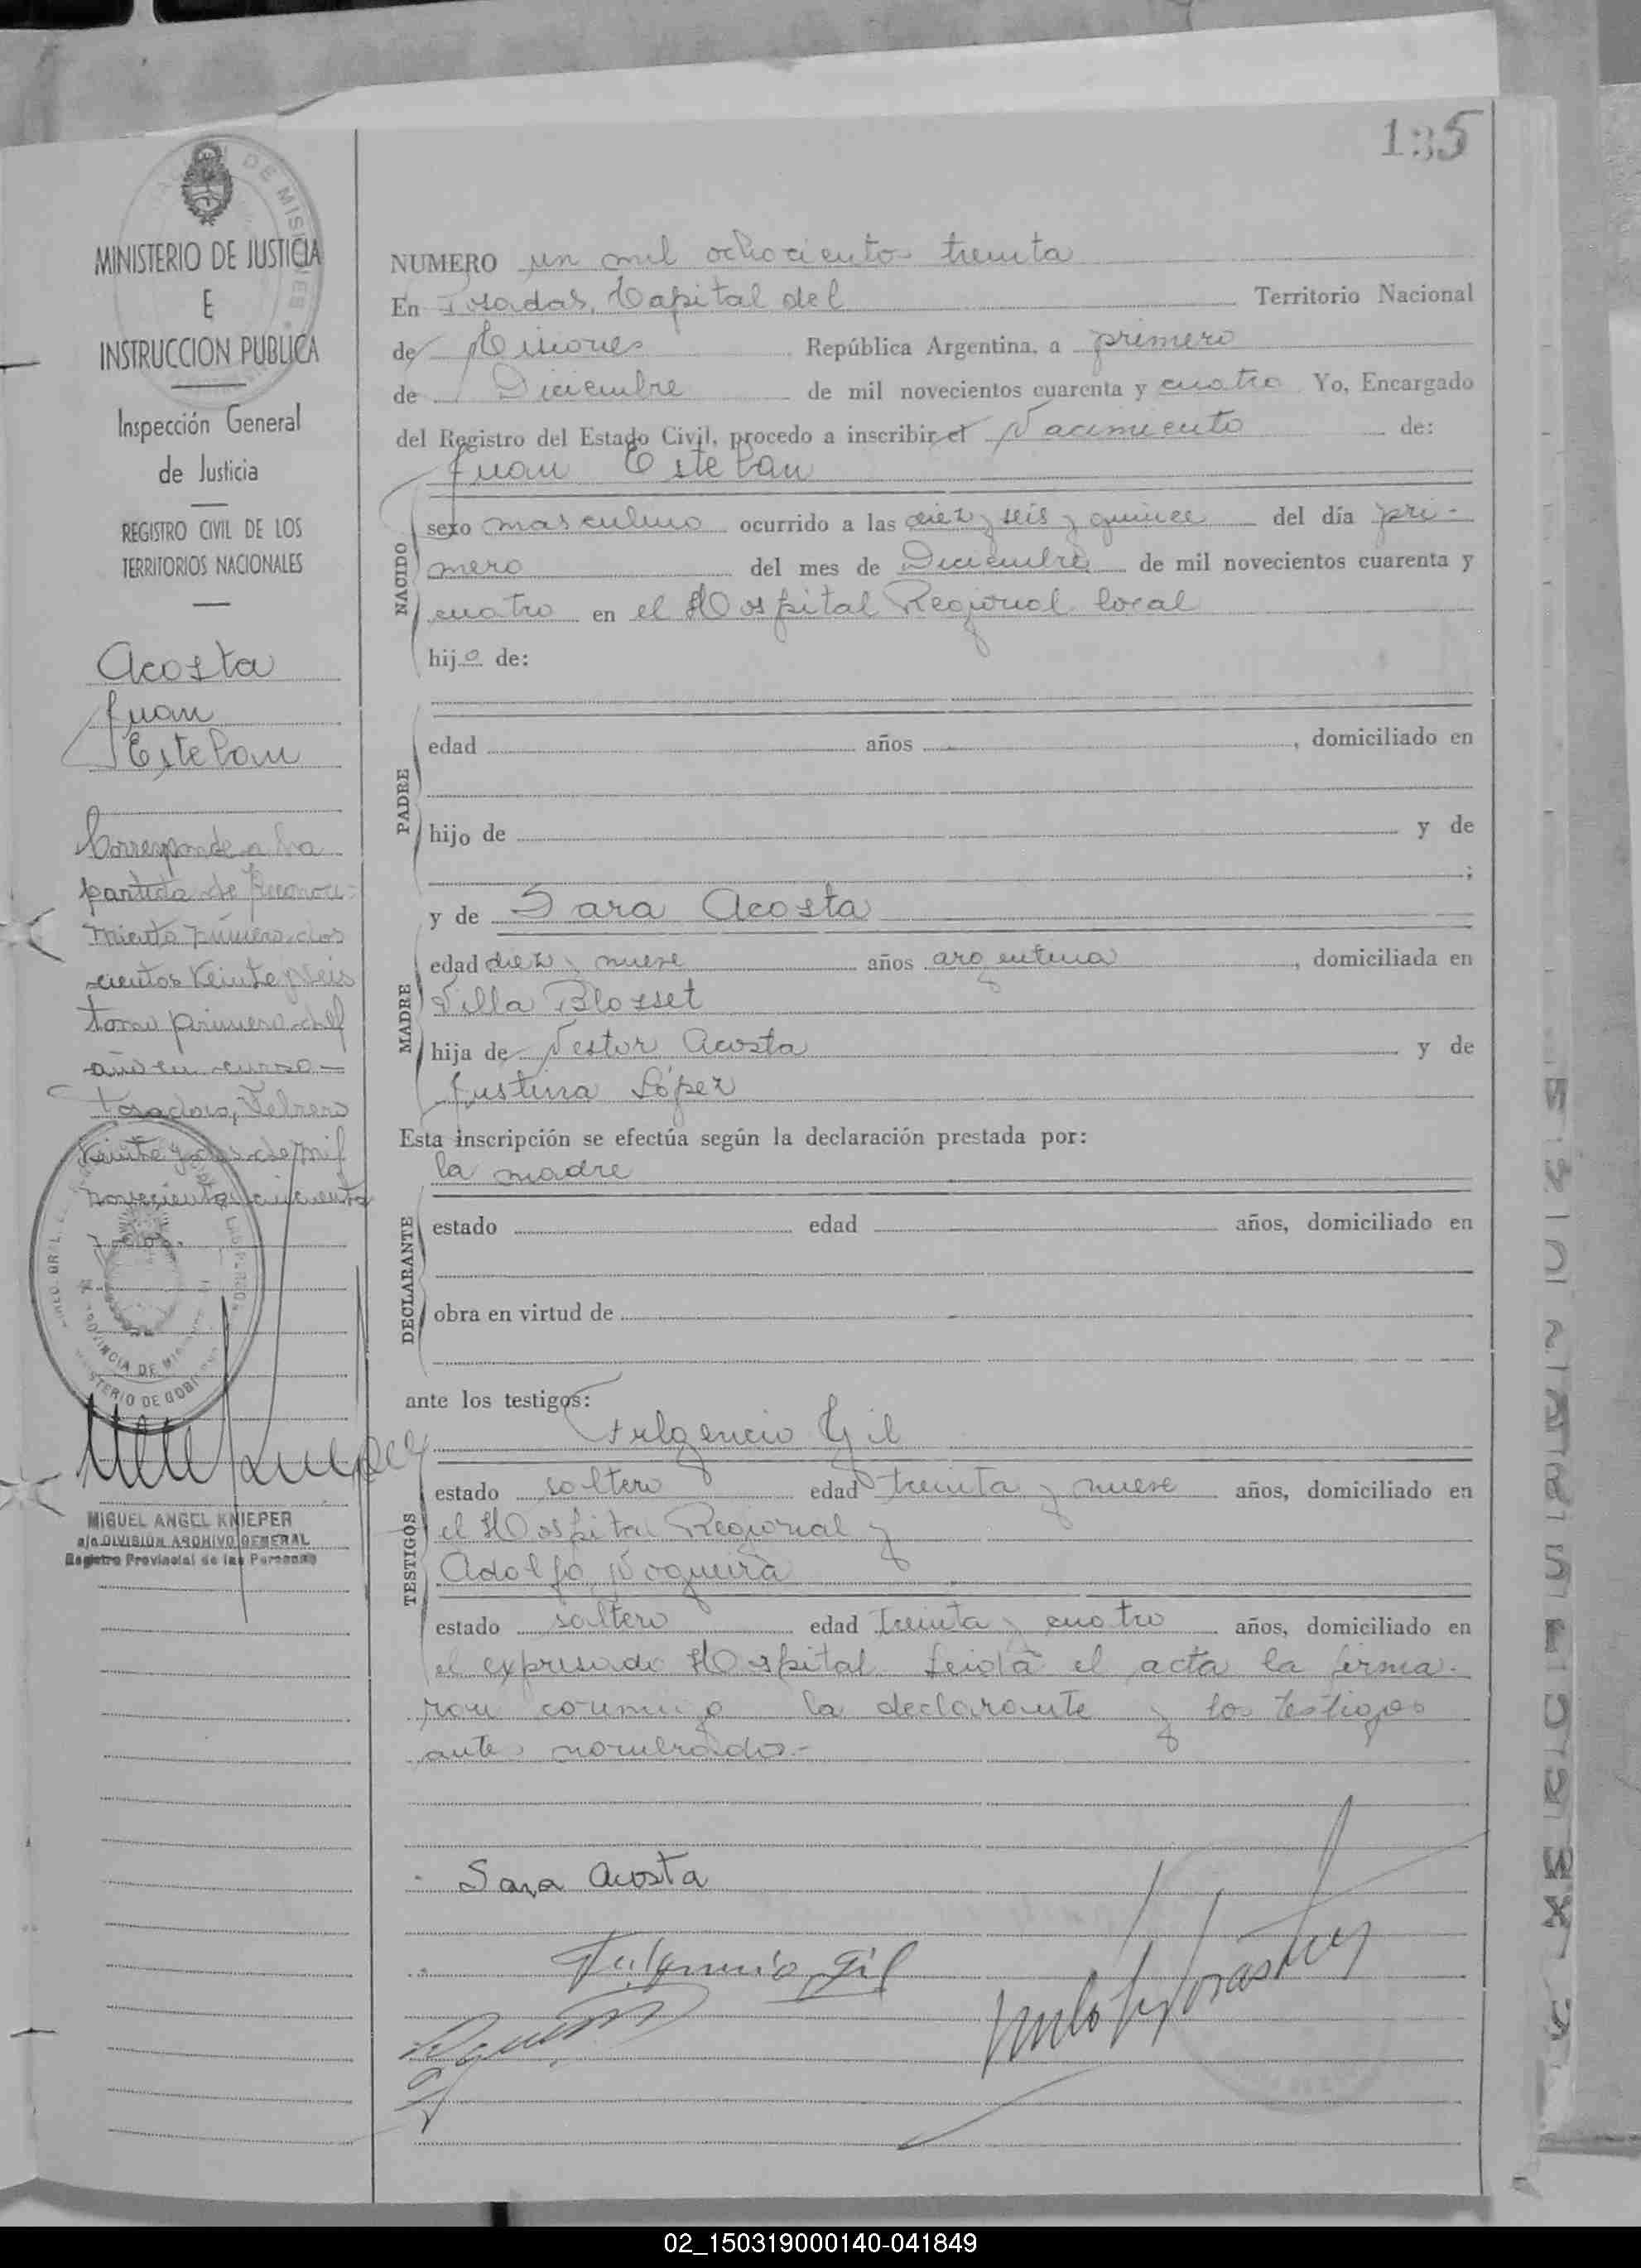 135
MINISTERIO DE JUSTICIA
E
INSTRUCCION PUBLICA
Inspección General
de Justicia
REGISTRO CIVIL DE LOS
TERRITORIOS NACIONALES
Acosta
Juan
Esteban
Corresponde a la
partida de Reconoci-
miento número dos
cientos veinte y seis
tomo primero del
año en curso -
Posadas, Febrero
veinte y dos de mil
novecientos cincuenta
PROVINCIA DE
MINISTERIO DE GOBI
MIGUEL ANGEL KNIEPER
a/c DIVISION ARCHIVO GENERAL
Registro Provincial de las Personas
NUMERO un mil ochociento treinta
En Posadas, Capital del Territorio Nacional
de Misiones República Argentina, a primero
de Diciembre de mil novecientos cuarenta y cuatro Yo, Encargado
del Registro del Estado Civil, procedo a inscribir el Nacimiento de:
Juan Esteban
NACIDO
sexo masculino ocurrido a las diez y seis y quince del día pri-
mero del mes de Diciembre de mil novecientos cuarenta y
cuatro en el Hospital Regional local
hijo de:
PADRE
edad años , domiciliado en
hijo de y de
;
y de Sara Acosta
MADRE
edad diez y nueve años argentina , domiciliada en
Villa Blosset
hija de Nestor Acosta y de
Justina López
Esta inscripción se efectúa según la declaración prestada por:
la madre
DECLARANTE
estado edad años, domiciliado en
obra en virtud de
ante los testigos:
Fulgencio Gil
TESTIGOS
estado soltero edad treinta y nueve años, domiciliado en
el Hospital Regional y
Adolfo Nogueira
estado soltero edad treinta y cuatro años, domiciliado en
el expresado Hospital. Leida el acta la firma-
ron conmigo la declarante y los testigos
antes nombrados.-
Sara Acosta
Fulgencio Gil
02_150319000140-041849